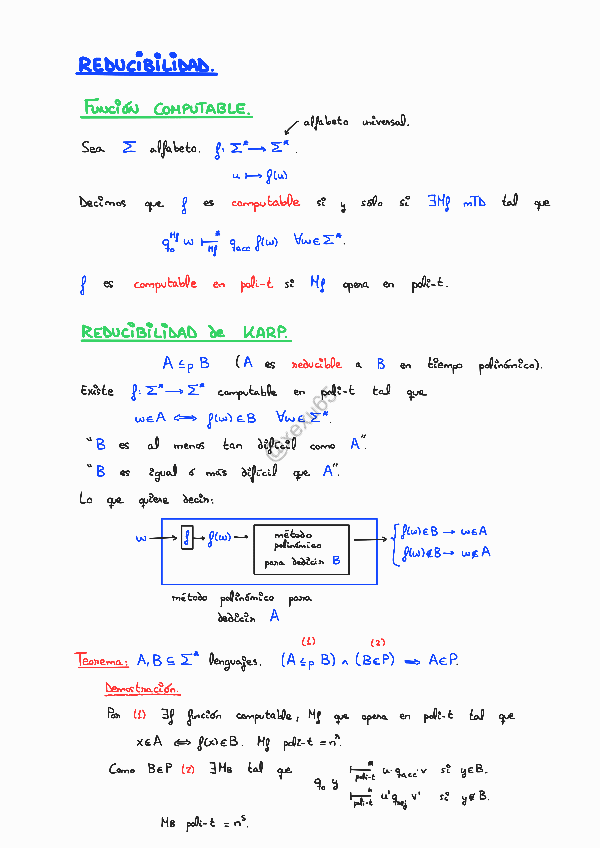 REDUCIBILIDAD.
FUNCIÓN COMPUTABLE.
alfabeto universal.
Sea Σ alfabeto. f: Σ* → Σ*.
u ↦ f(u)
Decimos que f es computable si y sólo si ∃Mf mTD tal que
q₀^Mf w ⊢*_Mf q_acc f(w) ∀w ∈ Σ*.
f es computable en poli-t si Mf opera en poli-t.
REDUCIBILIDAD de KARP.
A ≤p B (A es reducible a B en tiempo polinómico).
Existe f: Σ* → Σ* computable en poli-t tal que
w∈A ⟺ f(w)∈B ∀w∈Σ*.
"B es al menos tan difícil como A".
"B es igual ó más difícil que A".
Lo que quiere decir:
w → f → f(w) → método polinómico para decidir B → { f(w)∈B → w∈A
f(w)∉B → w∉A
método polinómico para
decidir A
(1) (2)
Teorema: A, B ⊆ Σ* lenguajes. (A ≤p B) ∧ (B∈P) ⟹ A∈P.
Demostración.
Por (1) ∃f función computable, Mf que opera en poli-t tal que
x∈A ⟺ f(x)∈B. Mf poli-t = nʳ.
Como B∈P (2) ∃MB tal que q₀ y ⊢*poli-t u q_acc v si y∈B.
⊢*poli-t u' q_rej v' si y∉B.
MB poli-t = nˢ.